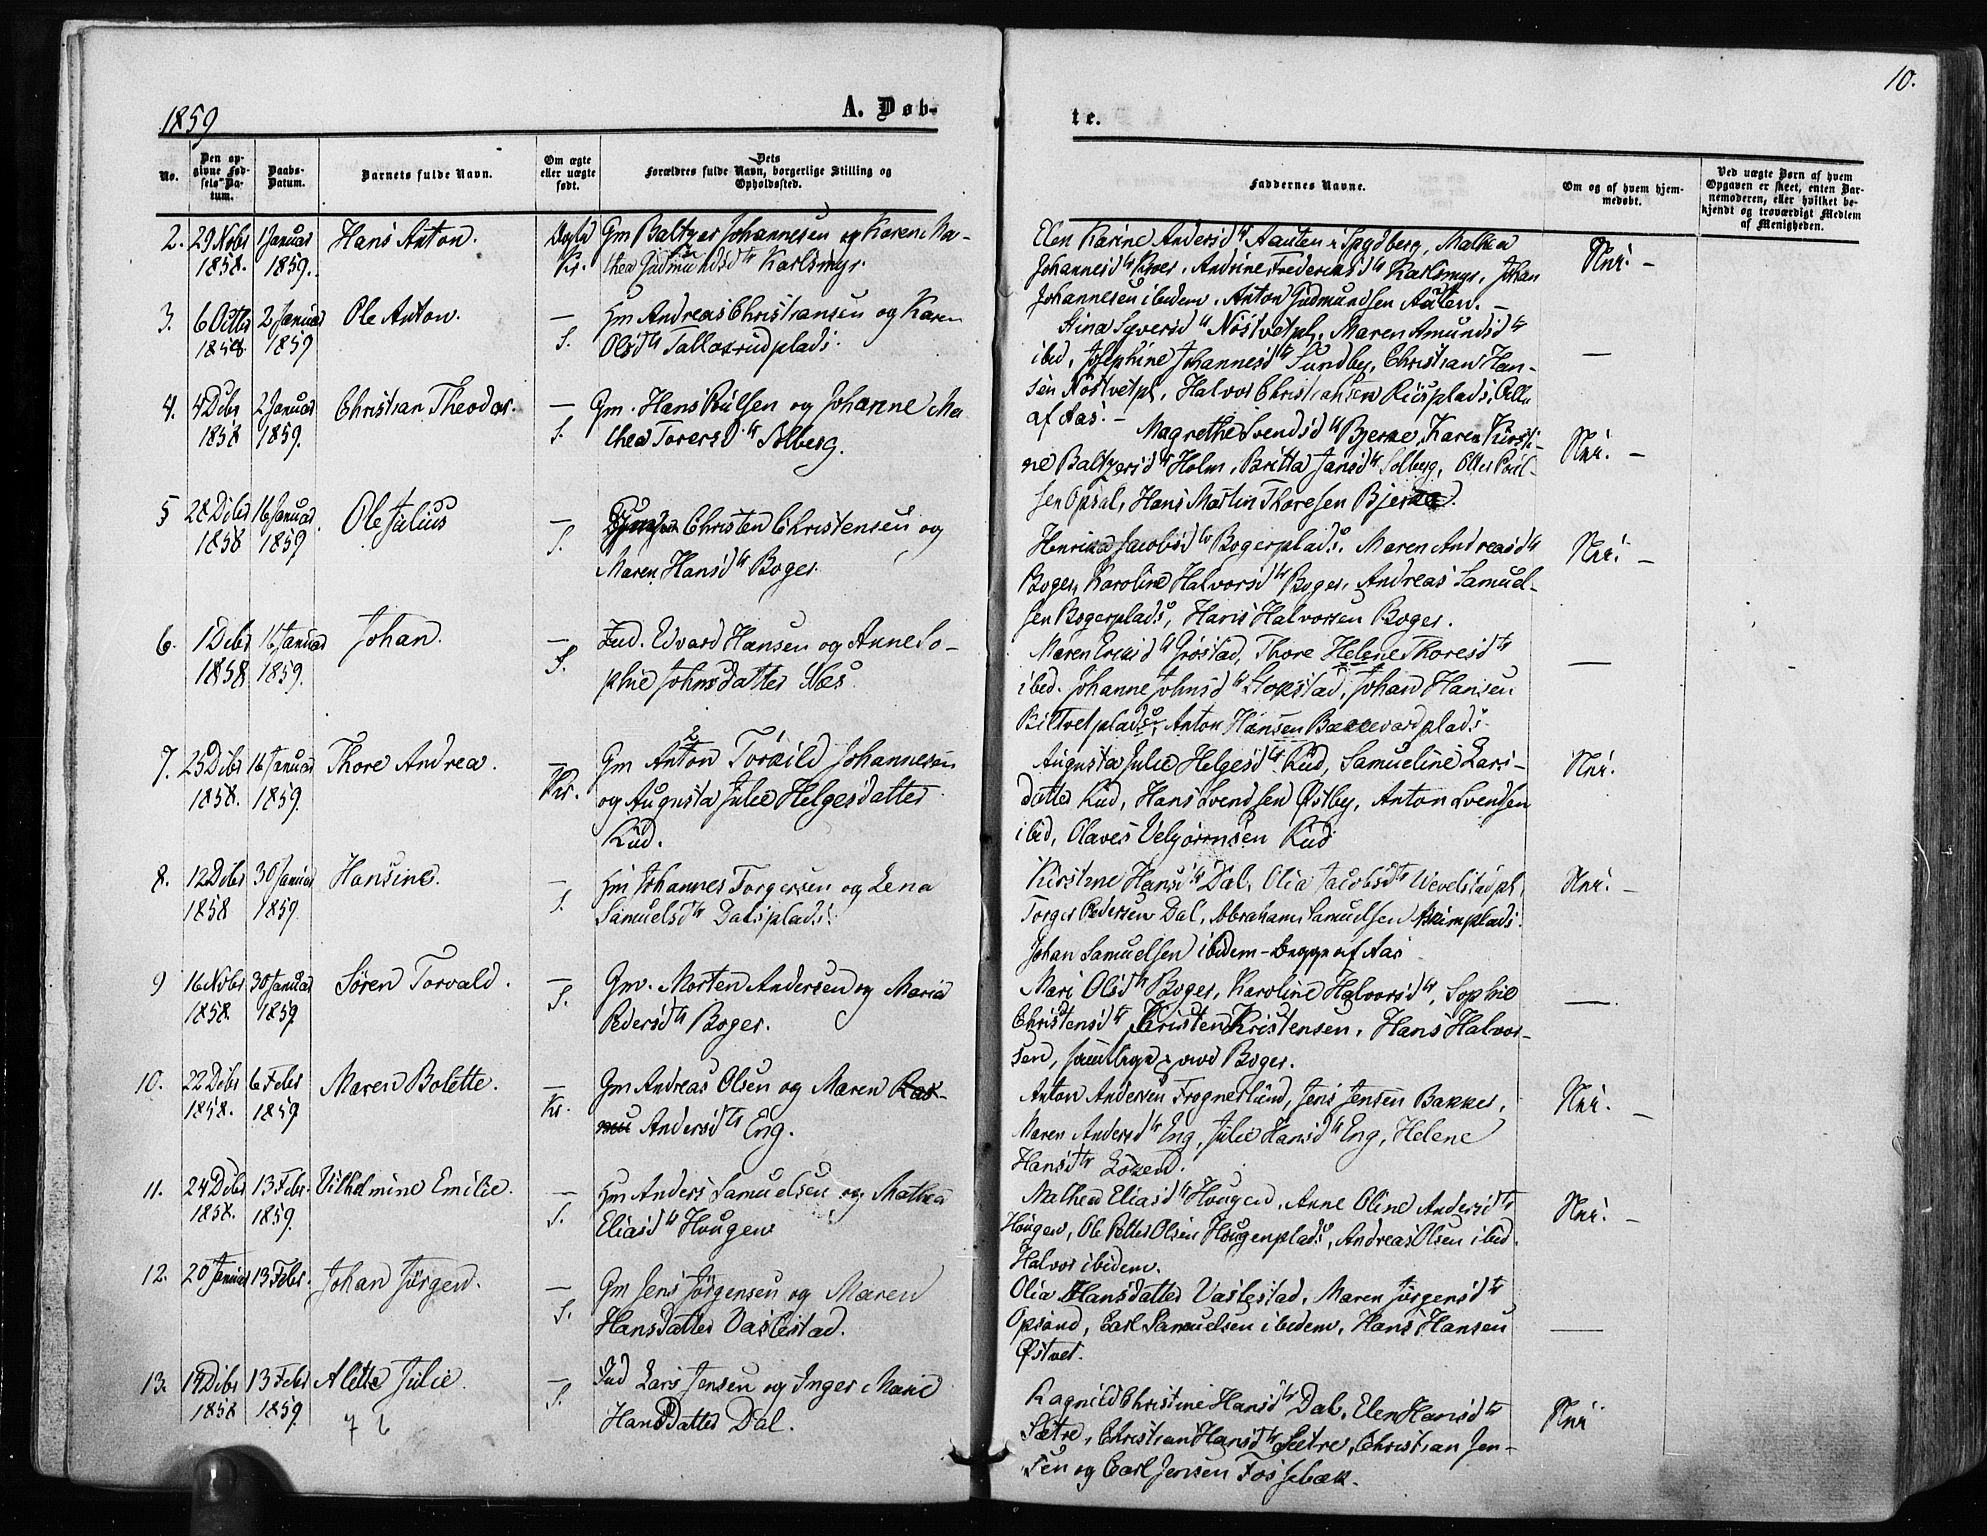 10.
1859
A. Døb-
te.
No.
Den op-
givne Fød-
sels-Da-
tum.
Daabs-
Datum.
Barnets fulde Navn.
Om ægte
eller uægte
født.
Dets
Forældres fulde Navn, borgerlige Stilling og
Opholdssted.
Faddernes Navne.
Om og af hvem hjem-
medøbt.
Ved uægte Børn af hvem
Opgaven er skeet, enten Bar-
nemoderen, eller hvilket be-
kjendt og troværdigt Medlem
af Menigheden.
2. 29 Nobr 1 Januar Hans Anton. Ægte Gm Baltzer Johannesen og Karen Ma-
1858. 1859. Kr. thea Gudmundsd tr Karlsmyr.
Elen Karine Andersd tr Aauten i Spydberg, Mathea
Johannesd tr Kroer, Andrine Frederiksd tr Karlsmyr, Johan
Johannesen ibidem, Anton Gudmundsen Auten. –
Nei. –
3. 6 Octbr 2 Januar Ole Anton. – Hm Andreas Christiansen og Karen
1858. 1859 S. Olsd tr Tallaxrudplads.
Stina Syversd tr Nøstvetpl, Maren Amundsd tr
ibid, Josephine Johannesd tr Sundby, Christian Han-
sen Nøstvetpl, Halvor Christiansen Riisplads, Alle
af Aas. –
—
4. 4 Dcbr 2 Januar Christian Theodor. – Gm. Hans Poulsen og Johanne Ma
1858 1859. S. thea Torersd tr Solberg.
Magrethe Svendsd tr Bjerke, Karen Kirsti-
ne Baltzersd tr Holm, Britta Jansd tr Solberg, Ole Poul-
sen Opsal, Hans Martin Thoresen Bjerke.
Nei. –
5 28 Dcbr 16 Januar. Ole Julius – Christen Christensen og
1858 1859 S. Maren Hansd tr Boger.
Henrika Jacobsd tr Bogerplads, Maren Andreasd tr
Boger, Karoline Halvorsd tr Boger, Andreas Samuel-
sen Bogerplads, Hans Halvorsen Boger.
Nei. –
6. 1 Dcbr 16 Januar Johan. – Ind. Edvard Hansen og Anne So-
1858 1859. S. phie Johnsdatter Næs.
Maren Ericsd tr Grøstad, Thore Helene Thoresd tr
ibid. Johanne Johnsd tr Stokstad, Johan Hansen
Biltvetplads, Anton Hansen Bakkevardplads.
—
7. 25 Dcbr 16 Januar Thore Andrea. – Gm Anton Torkild Johannesen
1858. 1859. Kr. og Augusta Julie Helgesdatter
Rud.
Augusta Julie Helgesd tr Rud, Samueline Lars-
datter Rud, Hans Svendsen Østby, Anton Svendsen
ibid, Olaves Velgjørnsen Rud
Nei.
8. 12 Dcbr 30 Januar Hansine. – Hm Johannes Torgersen og Lena
1858 1859. S. Samuelsd tr Dalsplads.
Kirstine Hansd tr Dal, Olia Jacobsd tr Wevelstadpl,
Torger Pedersen Dal, Abraham Samuelsen Askimplads.
Johan Samuelsen ibidem – Begge af Aas
Nei. –
9 16 Nobr 30 Januar Søren Torvald. – Gm. Morten Andersen og Maria
1858. 1859 S. Pedersd tr Boger.
Mari Olsd tr Boger, Karoline Halvorsd tr, Sophie
Christensd tr, Kristen Kristensen, Hans Halvor-
sen, samtlige paa Boger.
—
10. 22 Dcbr 6 Febr Maren Bolette. – Gm Andreas Olsen og Maren Ras-
1858. 1859 Kr. mu Andersd tr Eng.
Anton Andersen Frognerlund, Jens Jensen Bakker,
Maren Andersd tr Eng, Julie Hansd tr Eng, Helene
Hansd tr Løken.
Nei. –
11. 24 Dcbr 13 Febr Vilhelmine Emilie. – Hm Anders Samuelsen og Mathea
1858. 1859. S. Eliasd tr Hougen
Mathea Eliasd tr Hougen, Anne Oline Andersd tr
Hougen, Ole Petter Olsen Hougenplads, Andreas Olsen ibid.
Halvor ibidem.
Nei. –
12. 20 Januar 13 Febr. Johan Jørgen. – Gm Jens Jørgensen og Maren
S. Hansdatter Vastestad.
Olia Hansdatter Vastestad, Maren Jørgensd tr
Opsand, Carl Samuelsen ibidem, Hans Hansen
Østvet.
—
13. 14 Dcbr 13 Febr Alette Julie. – Ind Lars Jensen og Inger Marie
1858 1859. S. Hansdatter Dal.
7 6
Ragnild Christine Hansd tr Dal, Elen Hansd tr
Sætre, Christian Hansd tr Sætre, Christian Jen-
sen og Carl Jensen Fossebæk.
Nei